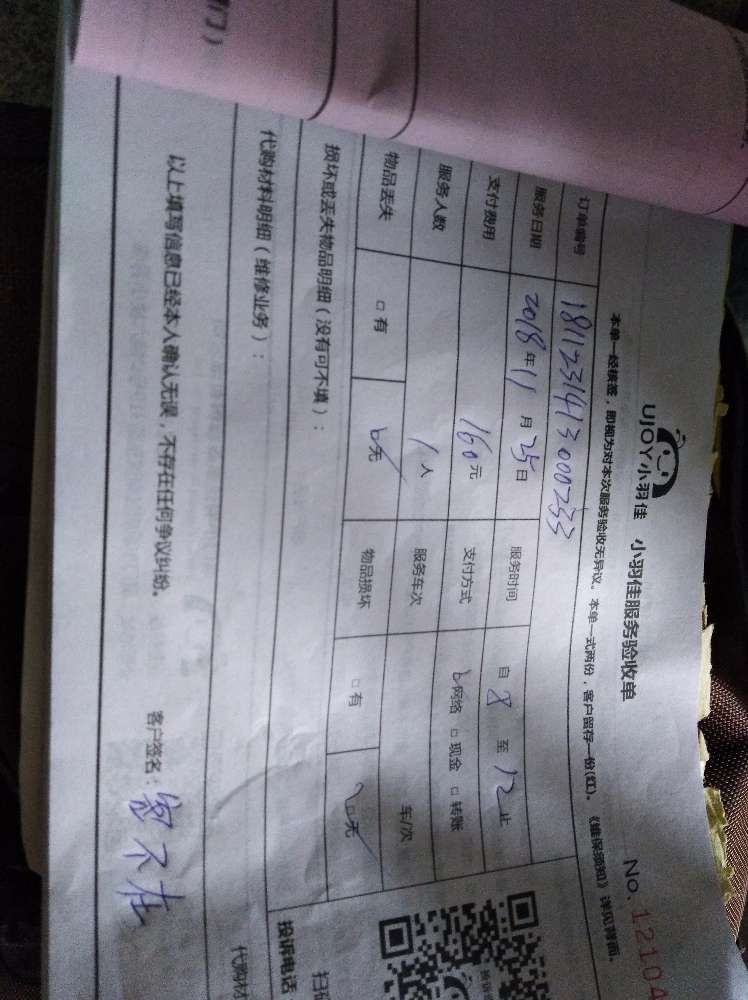 UJOY小羽佳 小羽佳服务验收单
No.12104
本单一经核签，即视为对本次服务验收无异议。本单一式两份，客户留存一份(红)。《维保须知》详见背面。
订单编号 1811231413000233
服务日期 2018年11月25日 服务时间 自8至12止
支付费用 160元 支付方式 网络 □现金 □转账
服务人数 1人 服务车次 车/次
物品丢失 □有 无 物品损坏 □有 □无
损坏或丢失物品明细（没有可不填）：
代购材料明细（维修业务）：
以上填写信息已经本人确认无误，不存在任何争议纠纷。
客户签名：您不在
投诉电话
扫码
代购材
门）